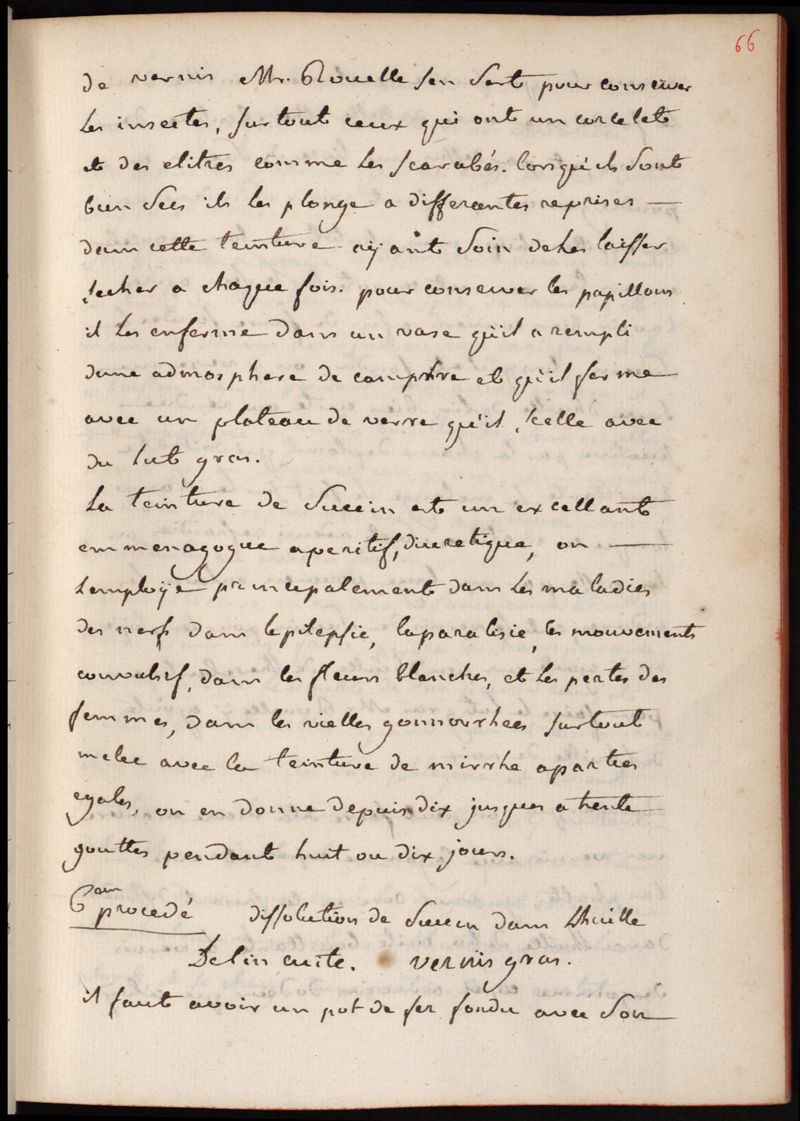 66
de vernis Mr. Rouelle sen sert pour conserver
Les insectes, surtout ceux qui ont un corcelet
et des elitres comme les scarabés. lorsqu'ils sont
bien secs ils les plonge a differantes reprises —
dans cette teinture ayant soin de les laisser
secher a chaque fois. pour conserver les papillons
il les enferme dans un vase qu'il a rempli
dune admosphere de camphre et qu'il ferme
avec un plateau de verre qu'il scelle avec
du lut gras.
La teinture de succin est un excellant
emmenagogue aperitif, diuretique, on —
Lemploye principalement dans les maladies
des nerfs dans lepilepsie, laparalisie, les mouvements
convulsif, dans les fleurs blanches, et les pertes des
femmes, dans les vielles gonnorrhees surtout
melee avec la teinture de mirrhe a parties
egales, on en donne depuis dix jusques a trente
gouttes pendant huit ou dix jours.
6eme procedé dissolution de succin dans Lhuille
De lin cuite. vernis gras.
il faut avoir un pot de fer fondu avec son